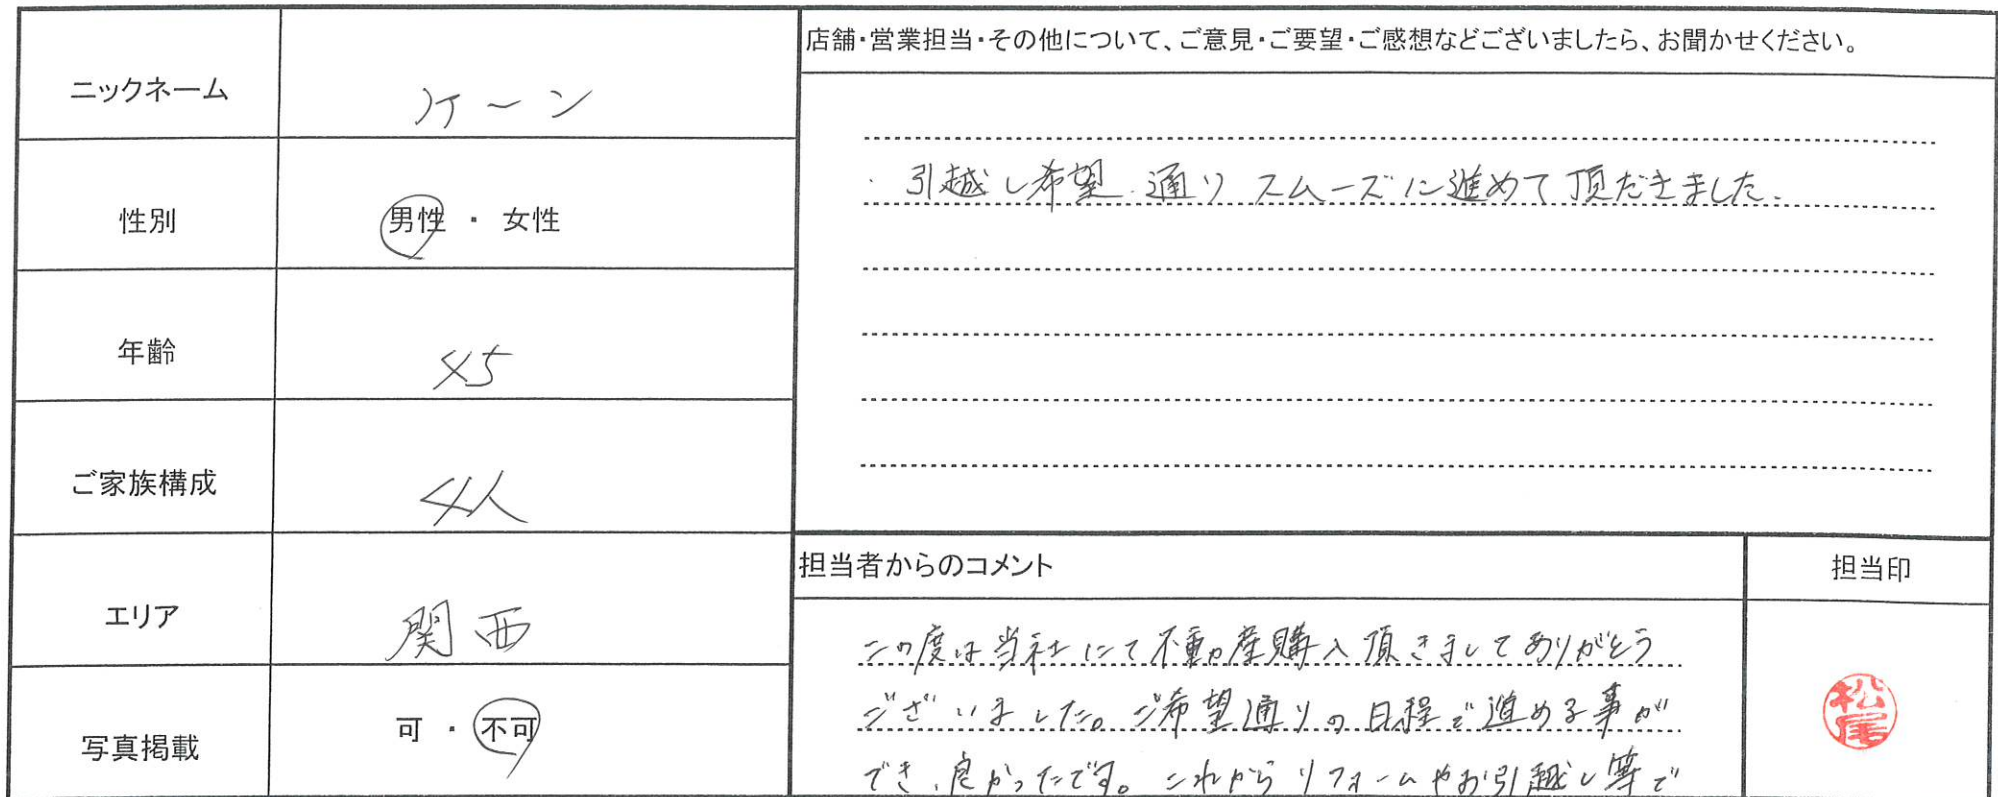 ニックネーム
ケーン
性別
男性 ・ 女性
年齢
45
ご家族構成
4人
エリア
関西
写真掲載
可 ・ 不可
店舗・営業担当・その他について、ご意見・ご要望・ご感想などございましたら、お聞かせください。
・引越し希望通りスムーズに進めて頂だきました。
担当者からのコメント
この度は当社にて不動産購入頂きましてありがとう
ございました。ご希望通りの日程で進める事が
でき、良かったです。これからリフォームやお引越し等で
担当印
松尾